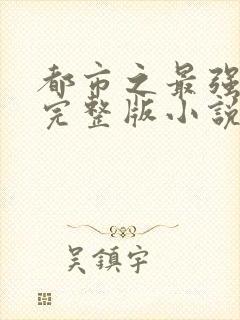 都市之最强
完整版小說
吳鎮宇